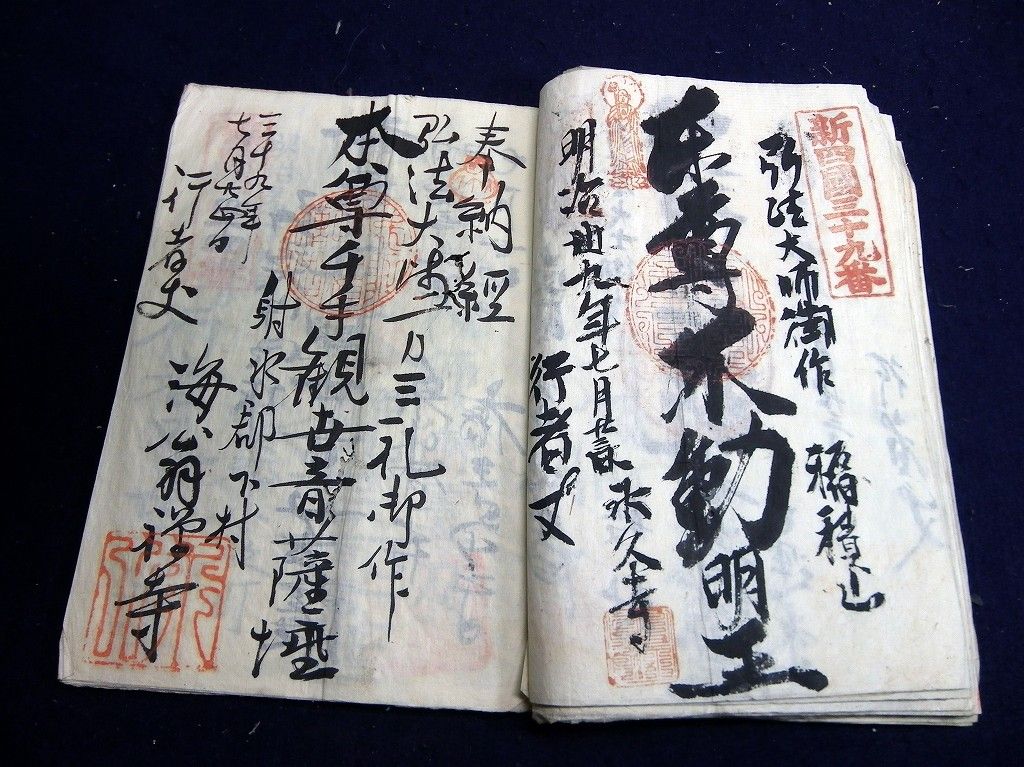 新四國三十九番
弘法大師御作
積山
本尊不動明王
明治卅九年七月廿
永久寺
行者丈
奉納経
弘法大师一刀三礼御作
本尊千手観世音菩薩
射水郡下村
海翁禅寺
三十九年
七月廿四日
行者丈